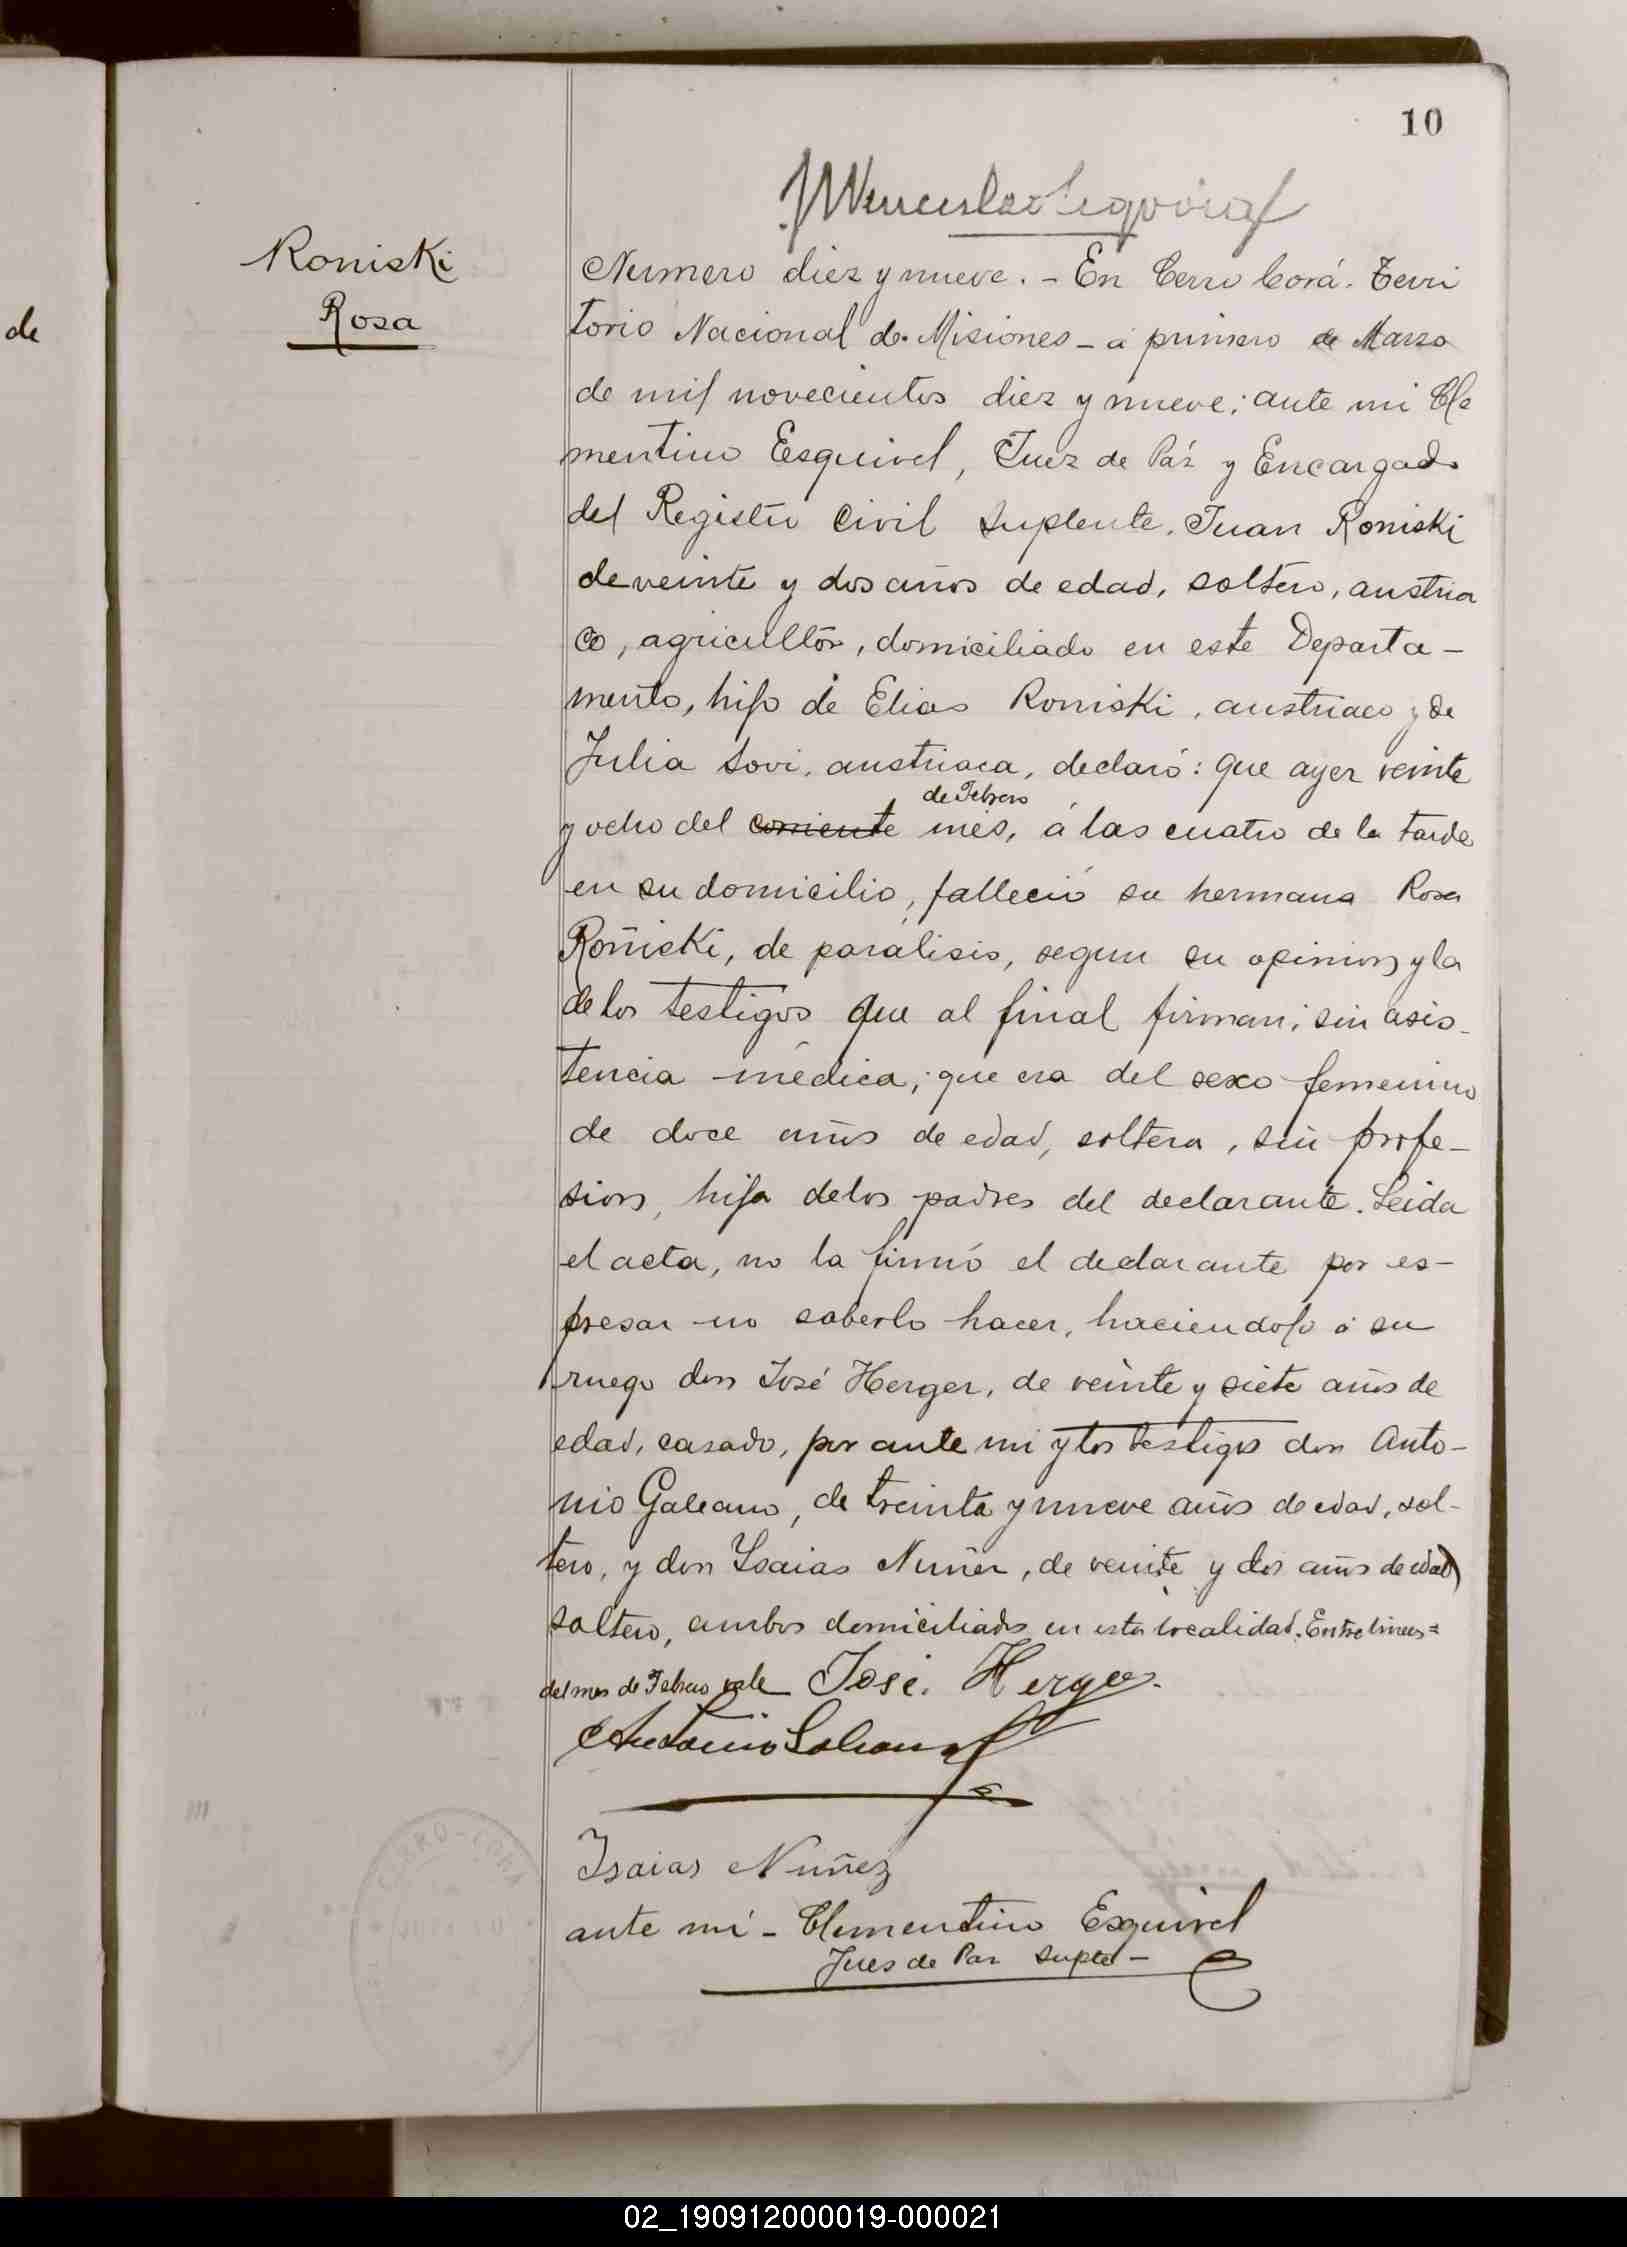 10
Roniski
Rosa
de
Numero diez y nueve. - En Cerro Corá. Terri
torio Nacional de Misiones - á primero de Marzo
de mil novecientos diez y nueve; ante mi Cle
mentino Esquivel, Juez de Páz y Encargado
del Registro Civil Suplente. Juan Roniski
de veinte y dos años de edad, soltero, austria
co, agricultór, domiciliado en este Departa-
mento, hijo de Elias Roniski, austriaco y de
Julia Sovi, austriaca, declaró: que ayer veinte
de Febrero
y ocho del corriente mes, á las cuatro de la tarde
en su domicilio, falleció su hermana Rosa
Roniski, de parálisis, segun su opinion y la
de los testigos que al final firman; sin asis-
tencia médica; que era del sexo femenino
de doce años de edad, soltera, sin profe-
sion, hija de los padres del declarante. Leida
el acta, no la firmó el declarante por es-
presar no saberlo hacer, haciendolo á su
ruego don José Herger, de veinte y siete años de
edad, casado, por ante mi y los testigos don Anto-
nio Galeano, de treinta y nueve años de edad, sol-
tero, y don Isaias Nuñez, de veinte y dos años de edad
soltero, ambos domiciliados en esta localidad. Entre lineas=
del mes de Febrero vale José Herger.
Antonio Galeano
Isaias Nuñez
ante mí - Clementino Esquivel
Jues de Paz Suplte -
CERRO-CORA
02_190912000019-000021